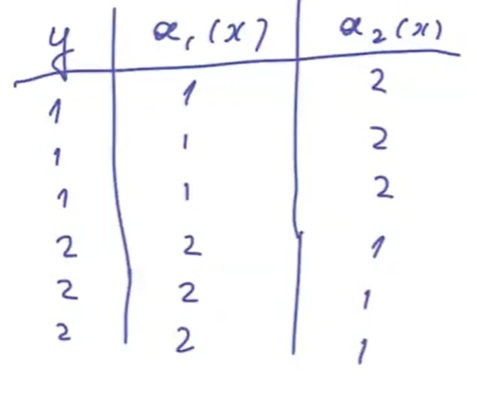 y a₁(x) a₂(x)
1 1 2
1 1 2
1 1 2
2 2 1
2 2 1
2 2 1